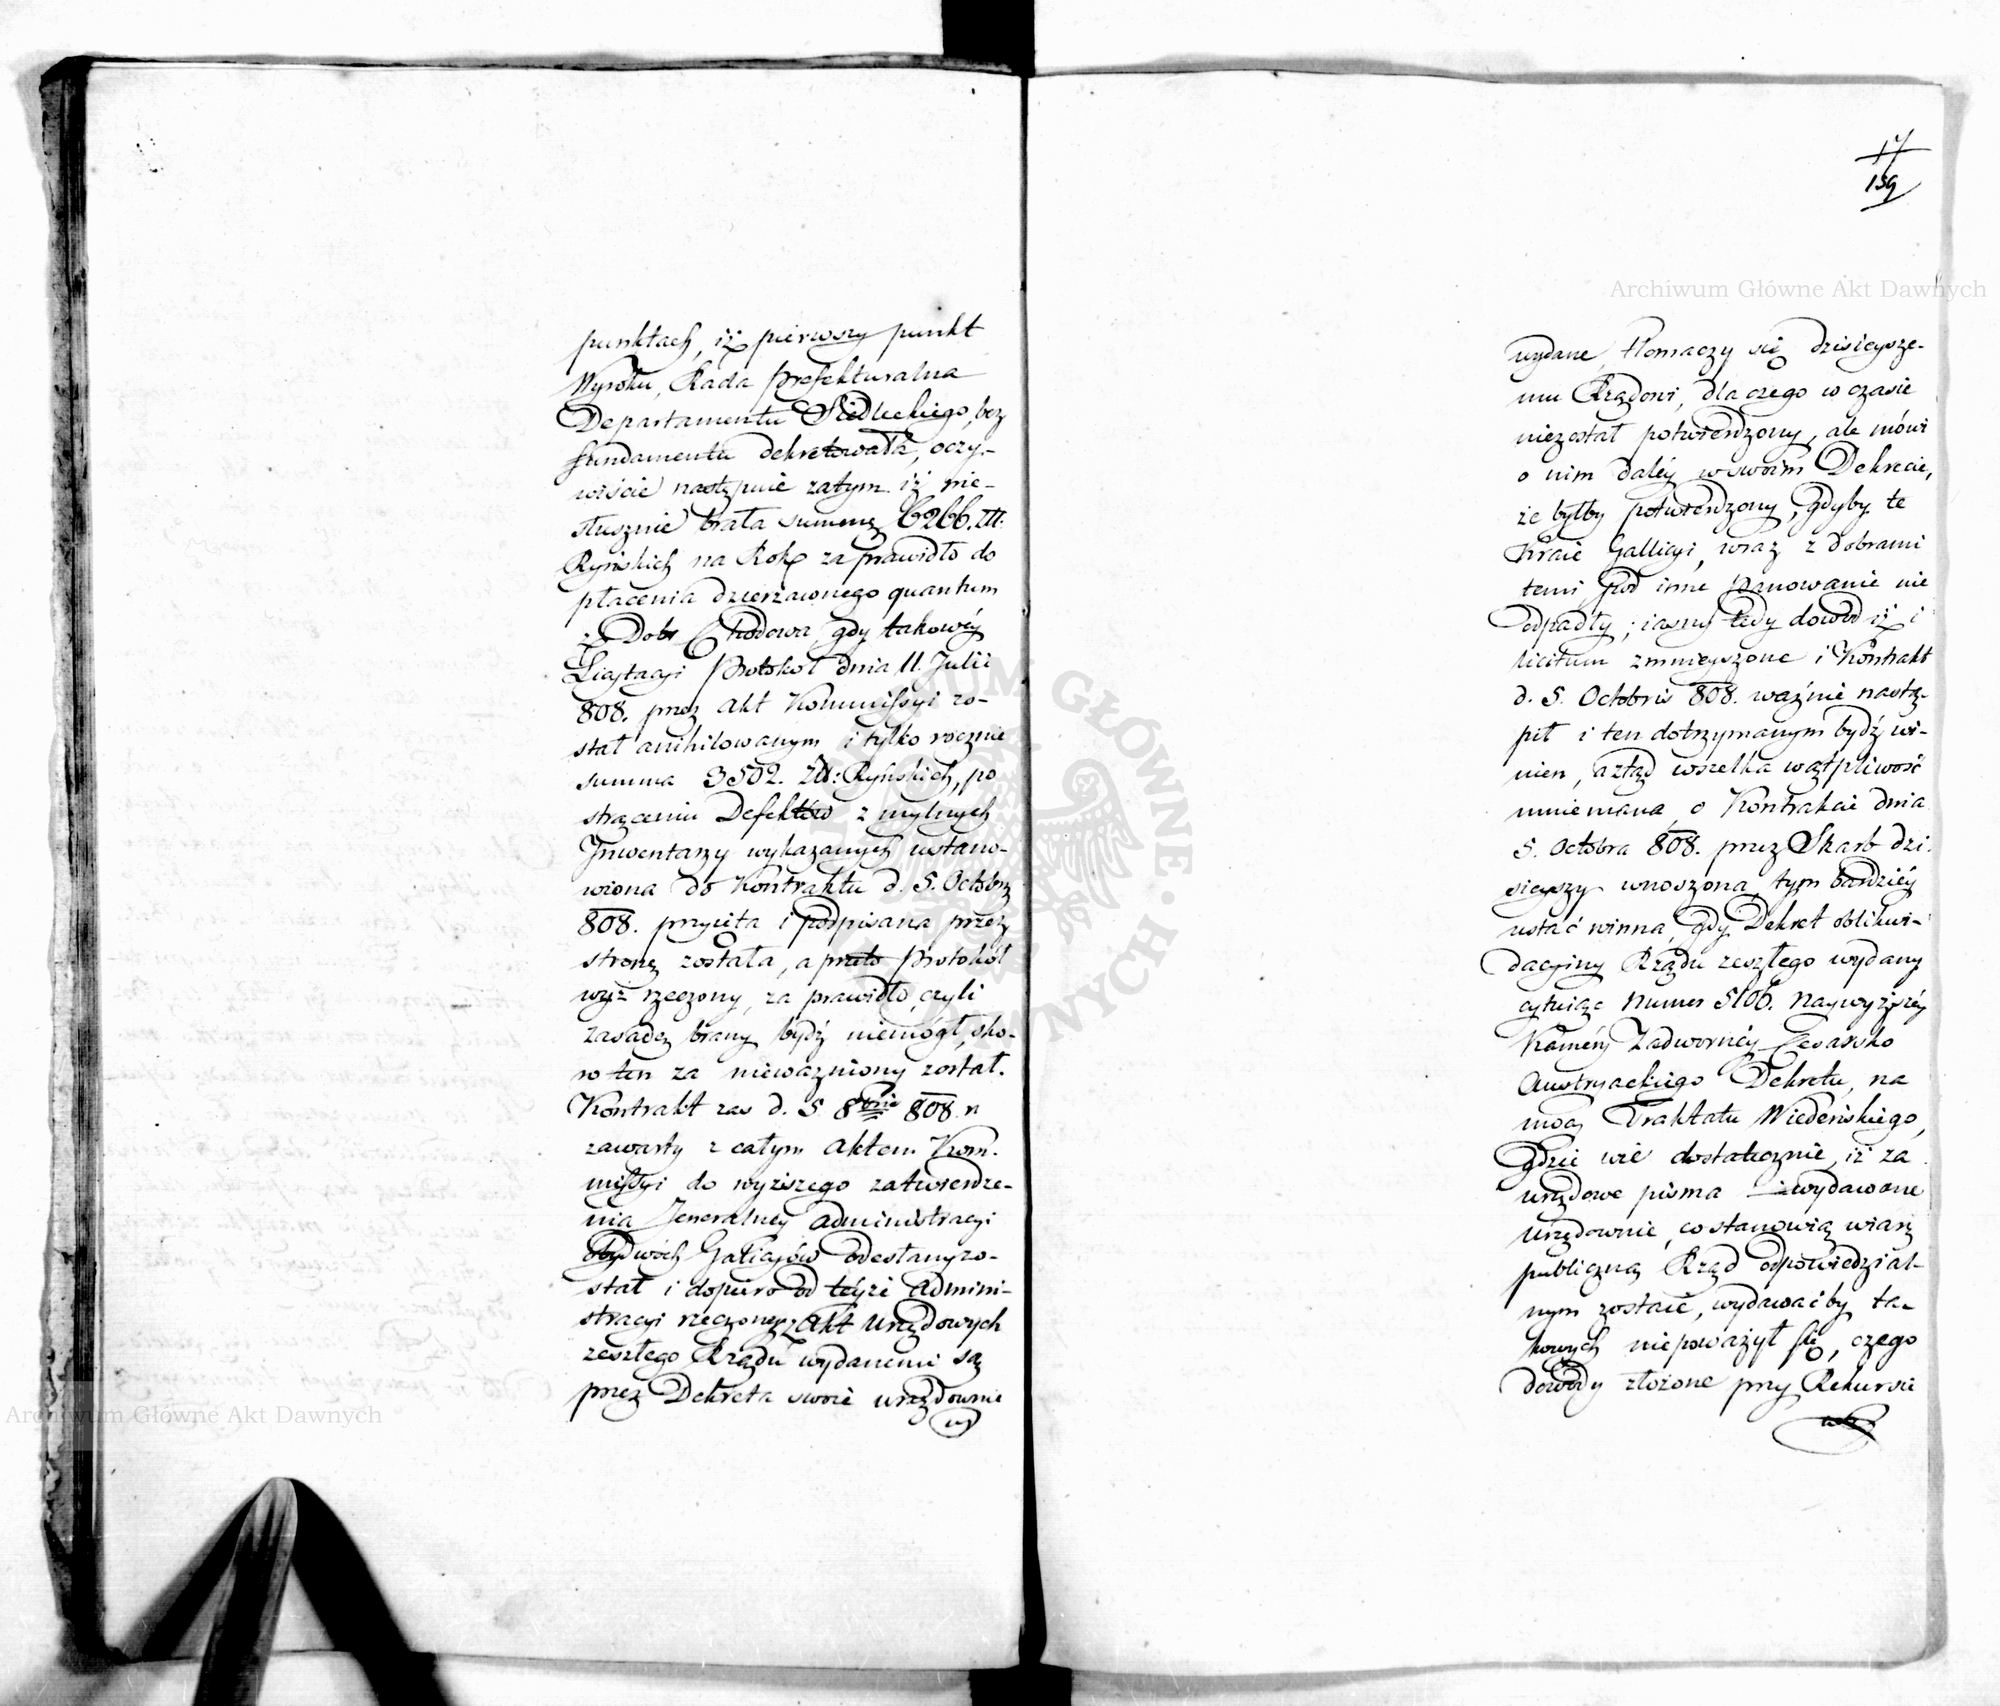 punktach, iż pierwszy punkt
Wyroku, Rada Prefekturalna
Departamentu Siedleckiego, bez
fundamentu dekretowała, oczy-
wiście następuie zatym iż nie-
słusznie brała summę 6266. Złł:
Ryńskich na Rok za prawidło do
płacenia dzierżawnego quantum
z Dobr Chodowa, gdy takowéy
Licytacyi Protokoł dnia 11. Julii
808. przez Akt Kommissyi zo-
stał anihilowanym i tylko rocznie
summa 3502. Złł: Ryńskich, po
strąceniu Defektów z mylnych
Inwentarzy wykazanych ustano-
wiona do Kontraktu d. 5. Octobrz
808. przyięta i podpisana przez
stronę została, a przeto Protokół
wyż rzeczony, za prawidło, czyli
zasadę brany bydź niemógł, sko-
ro ten za nieważniony został.
Kontrakt zas d. 5 8bris 808. r
zawarty z całym Aktem Kom-
missyi do wyższego zatwierdze-
nia Jeneralney Administracyi
obydwóch Galicyiów odesłany zo-
stał i dopiero od téyże Admini-
stracyi rzeczonej z Akt Urzędowych
zeszłego Rządu wydanemi są
przez Dekreta swoie urzędownie
wy
17
159
wydane, tłomaczy się dzisieysze-
mu Rządowi, dla czego w czasie
niezostał potwierdzony, ale mówi
o nim daléy w swoim Dekrecie,
że byłby potwierdzony, gdyby te
Kraie Gallicyi, wraz z dobrami
temi pod inne panowanie nie
odpadły; iasny tedy dowod iż i
licitum zmnieyszone i Kontrakt
d. 5. Octobris 808. ważnie nastą-
pił i ten dotrzymanym bydź wi-
nien, a ztąd wszelka wątpliwość
mniemana, o Kontrakcie dnia
5. Octobra 808. przez Skarb dzi
sieyszy wnoszona, tym bardziéy
ustać winna, gdy Dekret oblikwi-
dacyiny Rządu zeszłego wydany
cytuiąc Numer 5106. naywyższéy
Kaméry Zadwornéy Cesarsko
Austryackiego Dekretu, na
mocy Traktatu Wiedeńskiego,
gdzie wie dostatecznie, iż za
urzędowe pisma wydawane
urzędownie, co stanowią wiarę
publiczną Rząd odpowiedzial-
nym zostaie, wydawać by ta-
kowych niepoważył się, czego
dowody złożone przy Rekursie
Archiwum Główne Akt Dawnych
Archiwum Główne Akt Dawnych